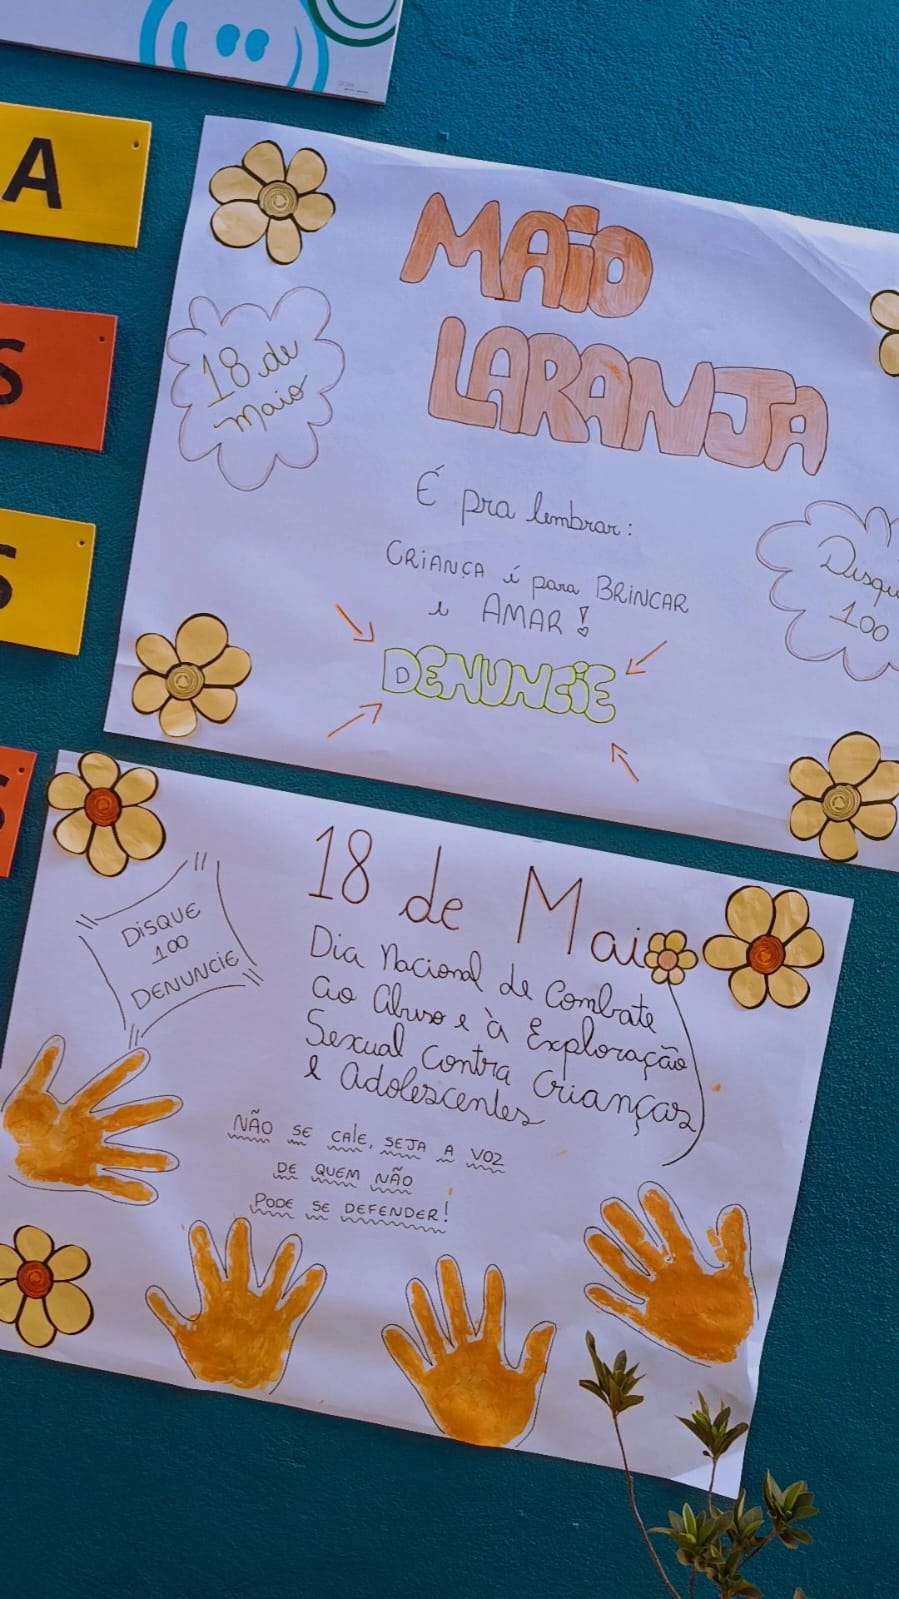 A
S
S
S
MAIO
LARANJA
18 de
maio
É pra lembrar:
CRIANÇA é para BRINCAR
e AMAR!
DENUNCIE
100
18 de Maio
Dia Nacional de Combate
ao Abuso e à Exploração
Sexual Contra Crianças
e Adolescentes
DISQUE
100
DENUNCIE
NÃO SE CALE, SEJA A VOZ
DE QUEM NÃO
PODE SE DEFENDER!